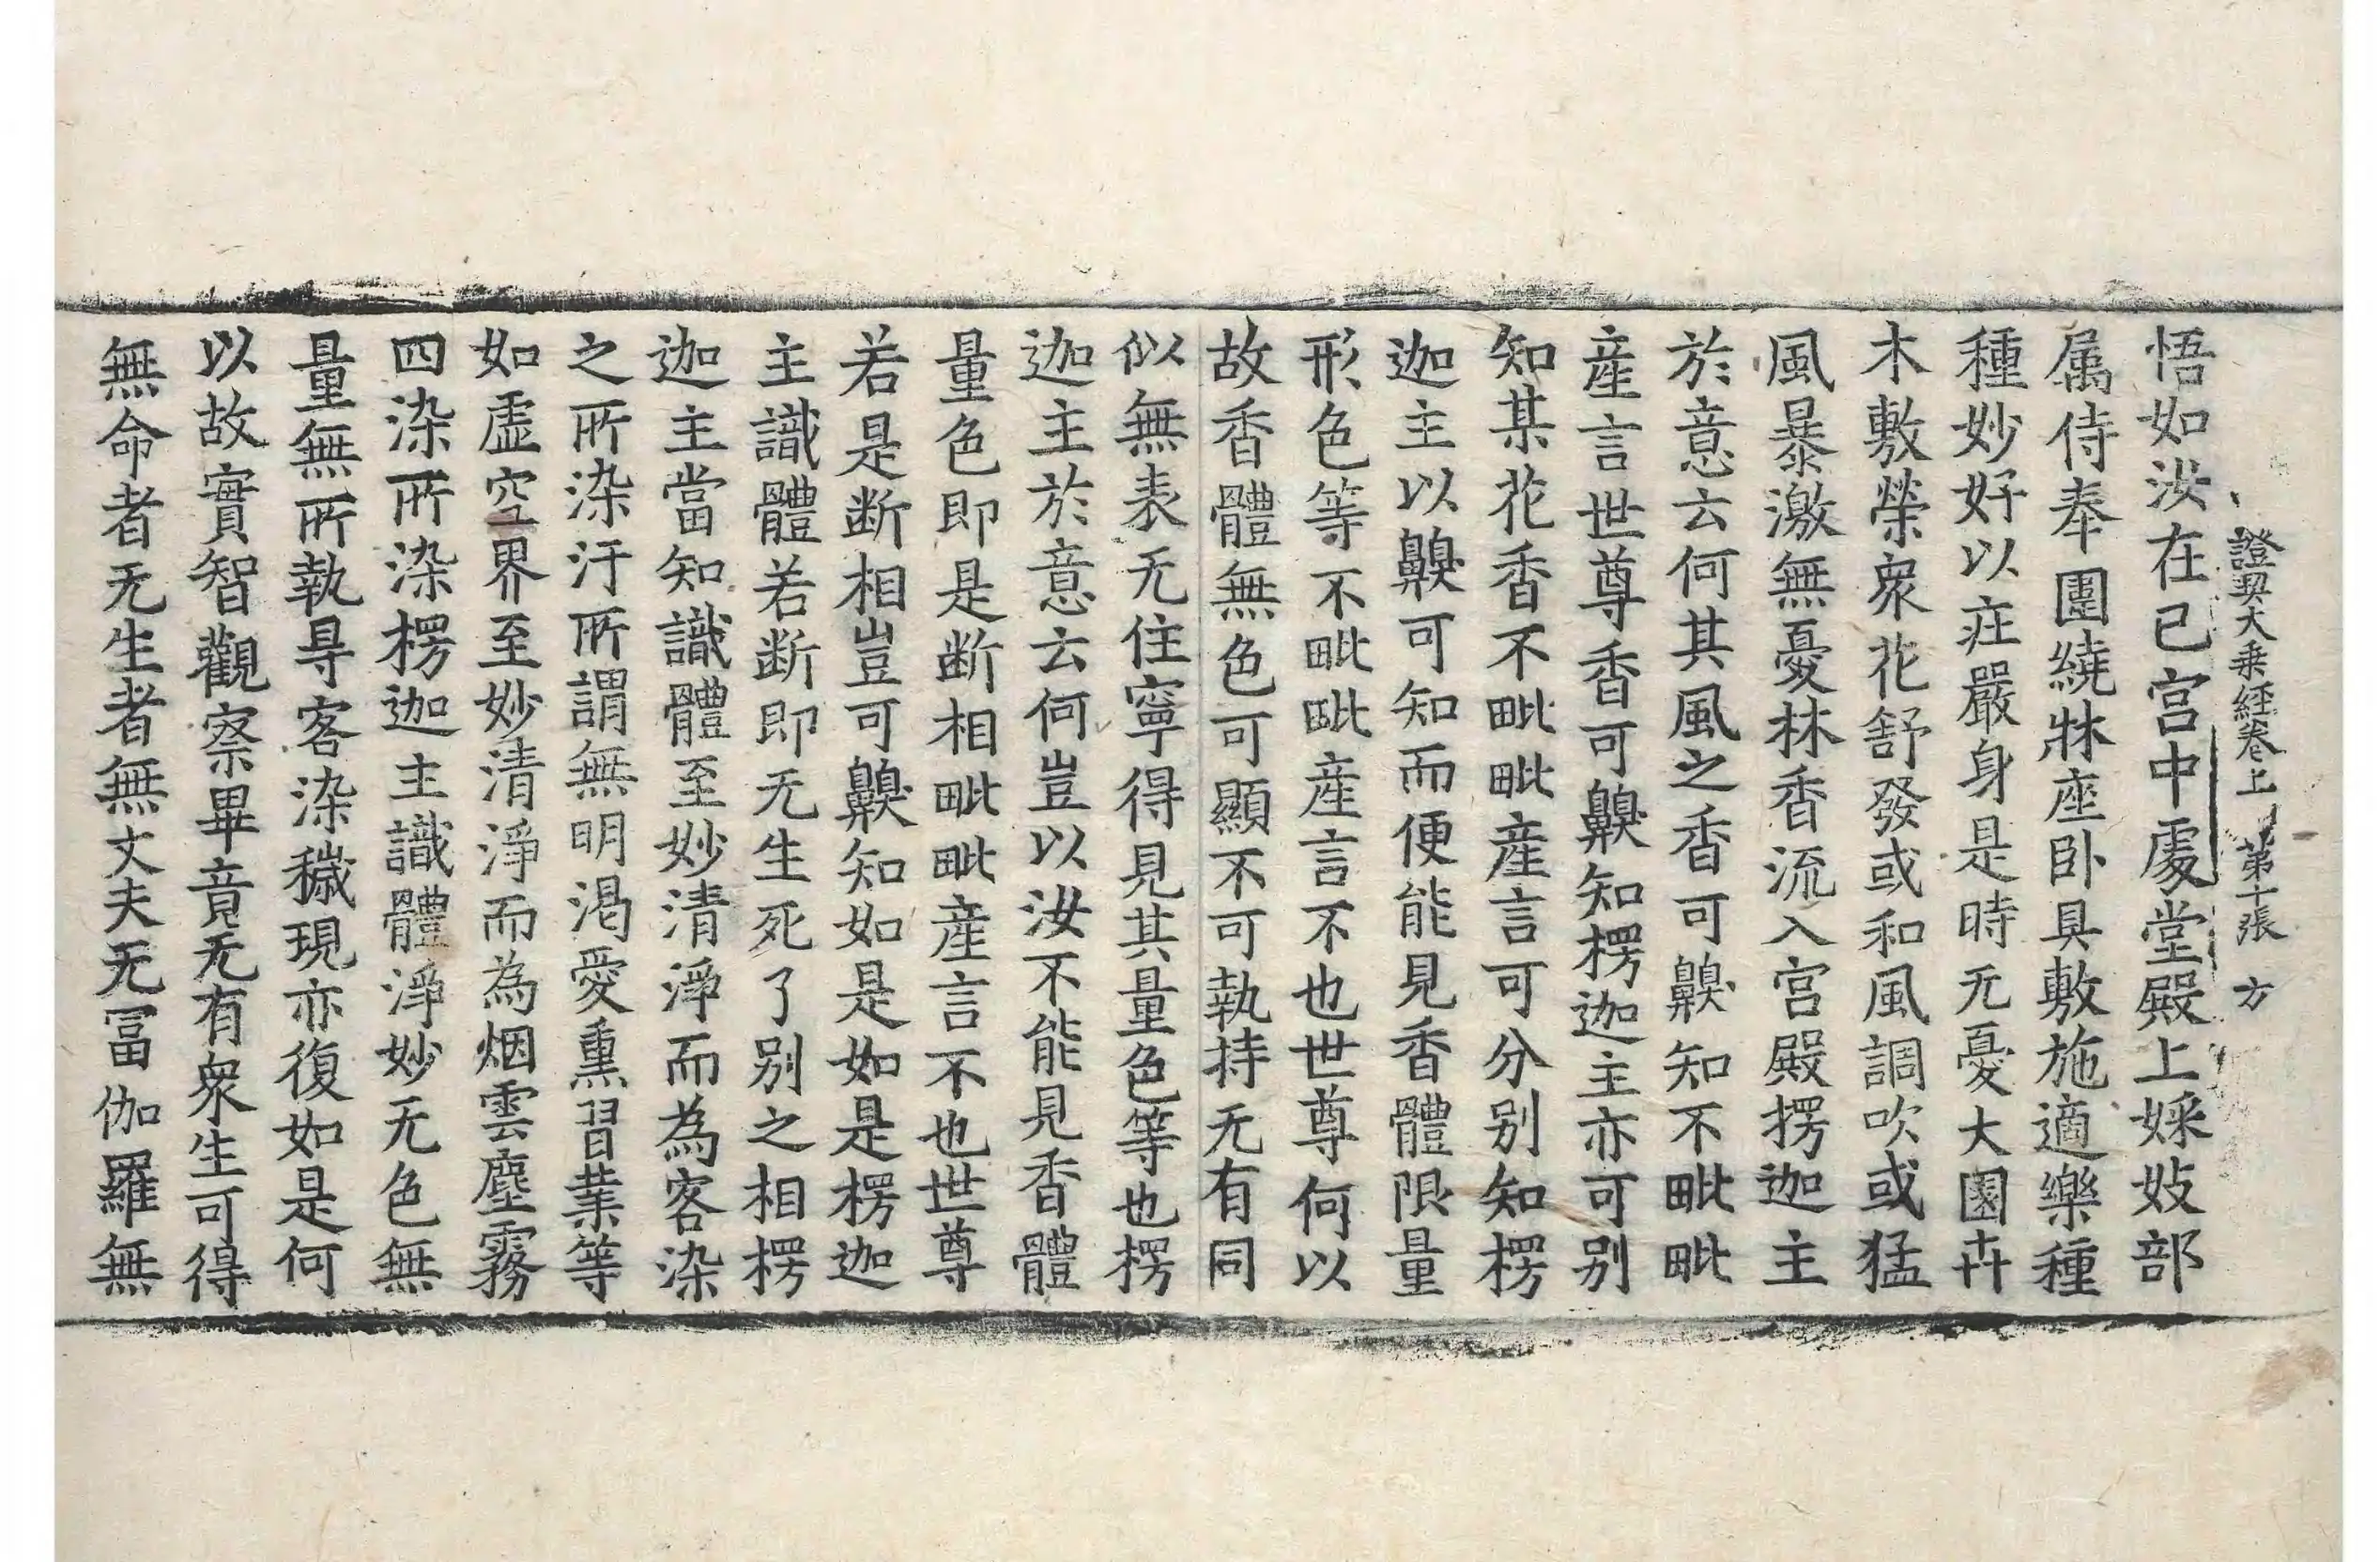 證契大乗經卷上 第十張 方
悟如汝在已宮中處堂殿上婇妓部
属侍奉圍繞牀座卧具敷施適樂種
種妙好以庄嚴身是時无憂大園卉
木敷榮衆花舒發或和風調吹或猛
風暴激無憂林香流入宮殿楞迦主
於意云何其風之香可齅知不毗毗
産言世尊香可齅知楞迦主亦可别
知某花香不毗毗産言可分别知楞
迦主以齅可知而便能見香體限量
形色等不毗毗産言不也世尊何以
故香體無色可顯不可執持无有同
似無表无住寧得見其量色等也楞
迦主於意云何豈以汝不能見香體
量色即是断相毗毗産言不也世尊
若是断相豈可齅知如是如是楞迦
主識體若断即无生死了别之相楞
迦主當知識體至妙清淨而為客染
之所染汙所謂無明渇愛熏習業等
如虚空界至妙清淨而為烟雲塵霧
四染所染楞迦主識體淨妙无色無
量無所執㝵客染穢現亦復如是何
以故實智觀察畢竟无有衆生可得
無命者无生者無丈夫无冨伽羅無